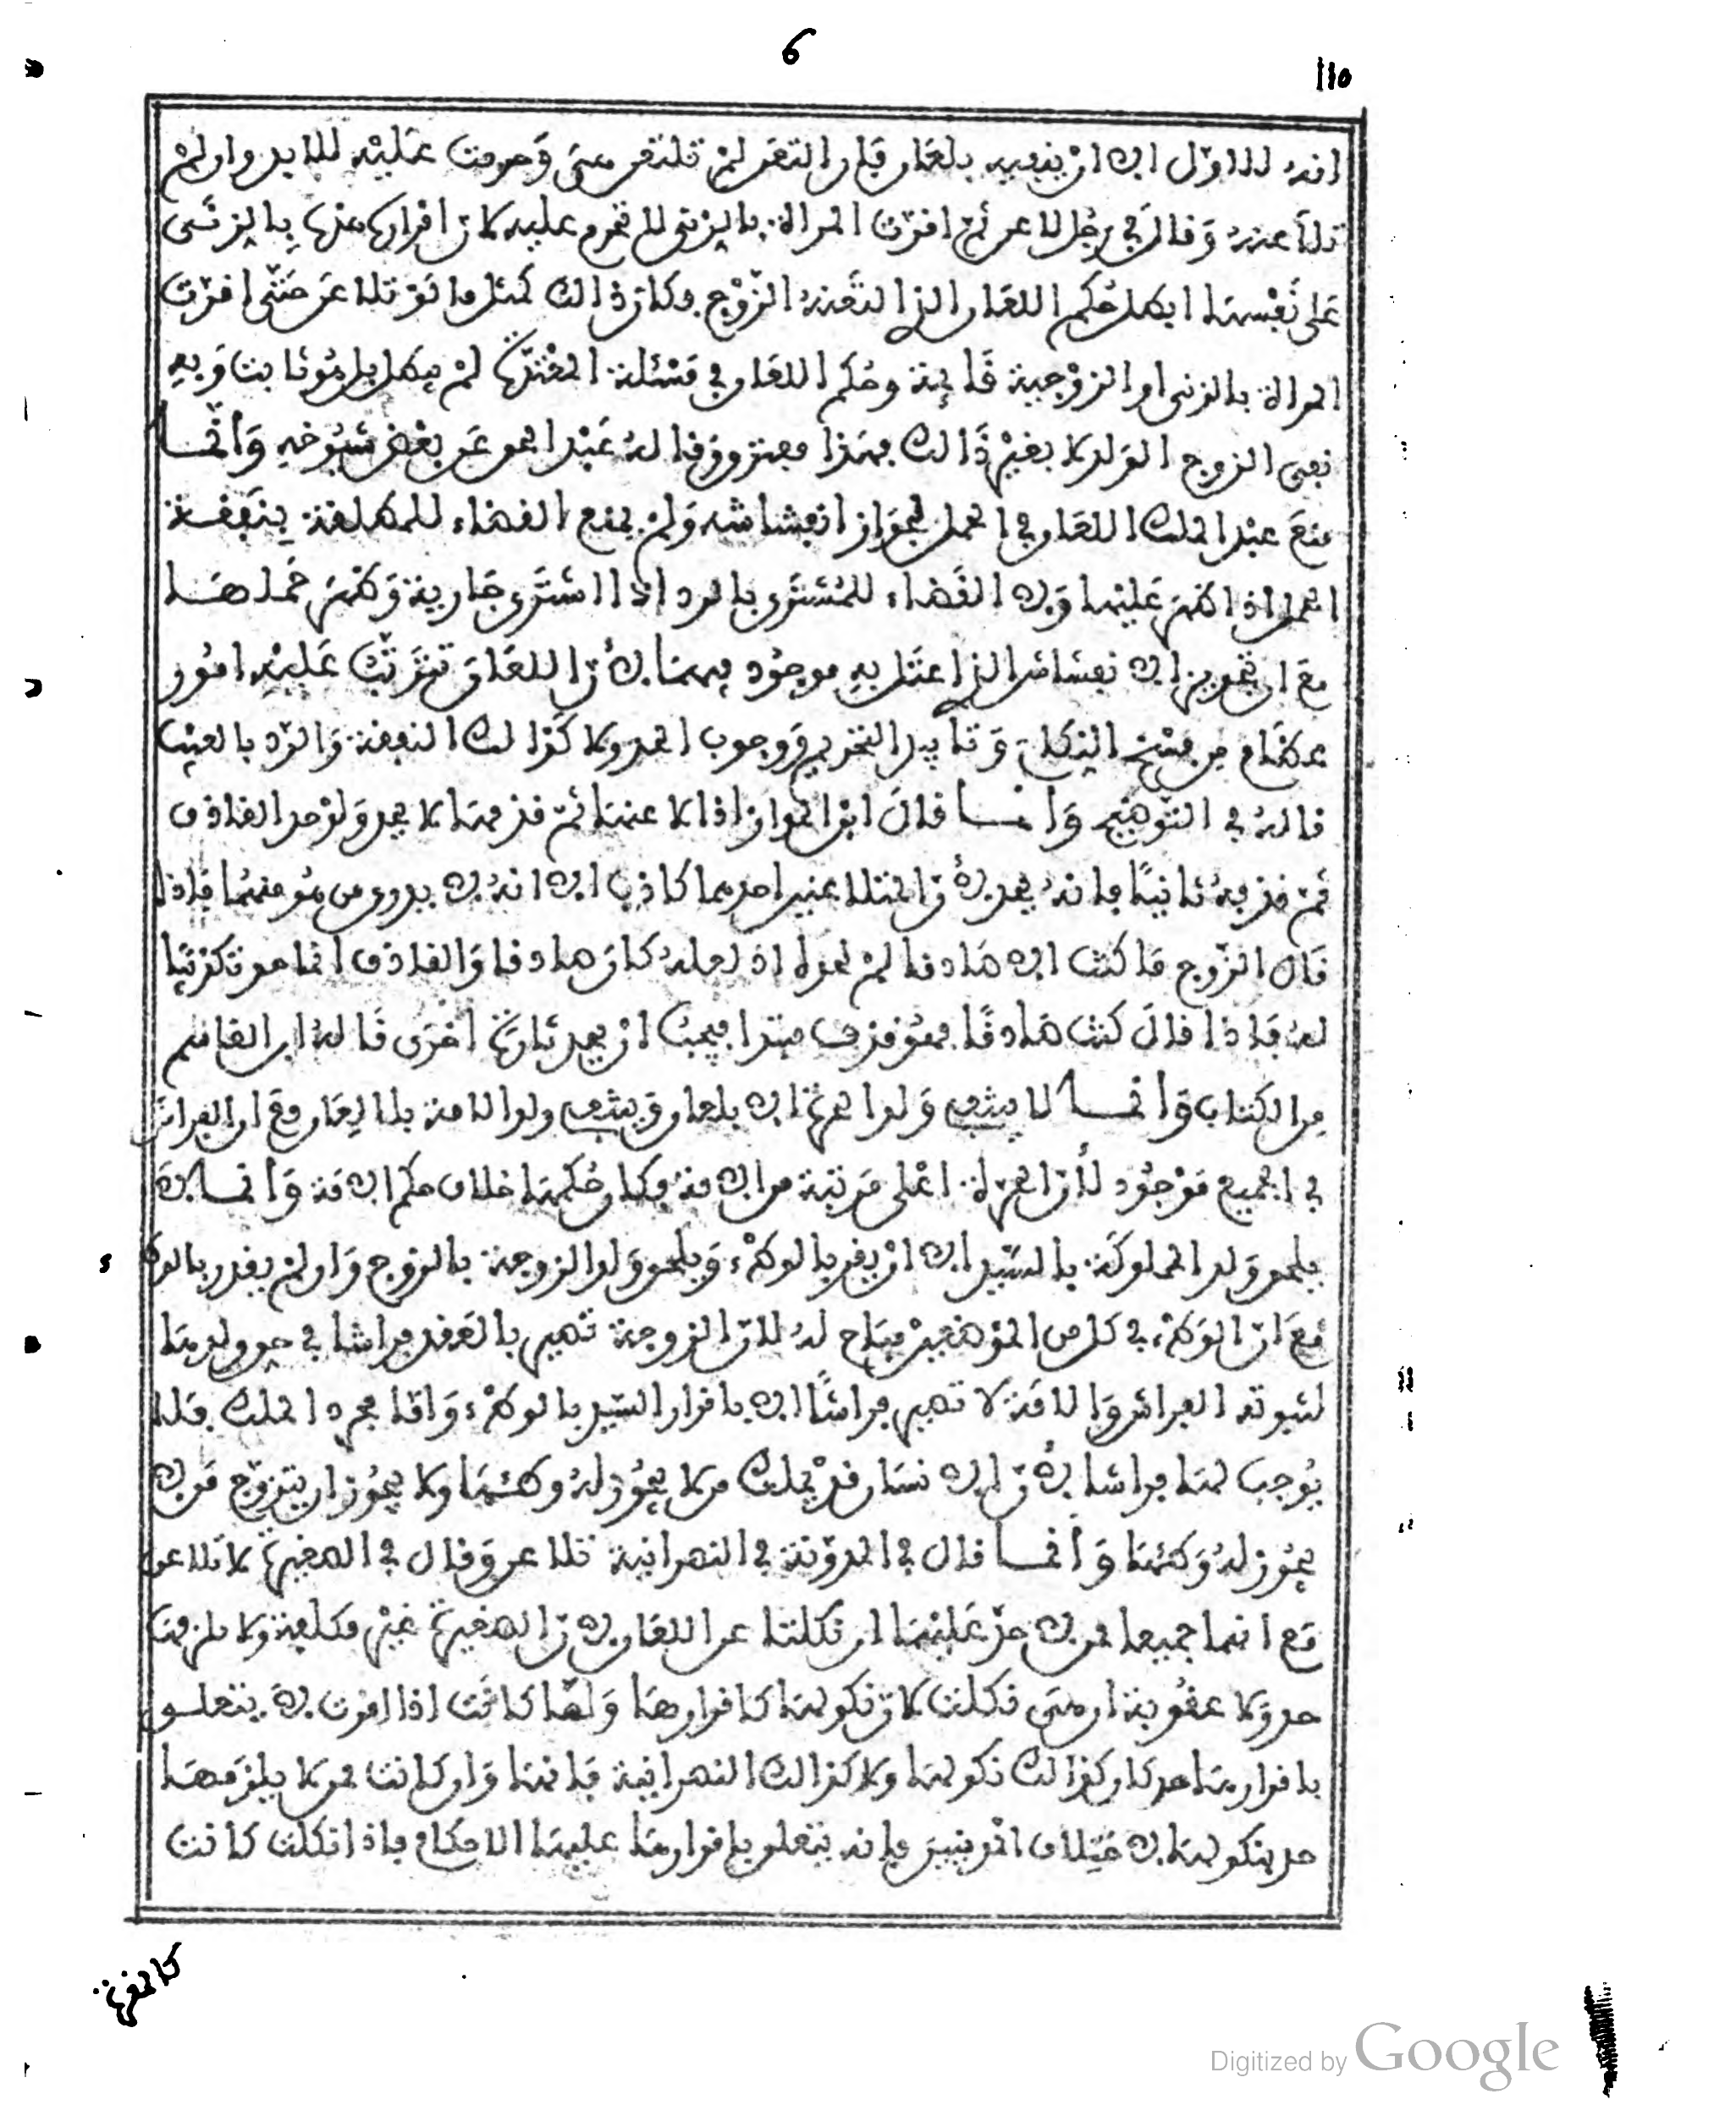 6
110
انه للاول الا ان ينفيه بلعان فإن التعن لم تلتعن هي وحرمت عليه للابد وان لم
تلاعنه وقال في رجل لاعن ثم اقرت المرأة بالزنى لم تحرم عليه لان اقرارها بالزنى
على نفسها ابطل حكم اللعان الذي التعنه الزوج وكان ذالك كمثل ما لو تلاعن حتى اقرت
المرأة بالزنى او الزوجية قائمة وحكم اللعان في مسئلة المغترة لم يبطل بل هو ثابت وبه
نفى الزوج الولد لا بغير ذالك فهذا مفترق وقاله عبد الحق عن بعض شيوخه وانما
منع عبد الملك اللعان في الحمل لجواز انفشاشه ولم يمنع القضاء للمطلقة بنفقة
الحمل اذا ظهر عليها ولا القضاء للمشتري بالرد اذا اشترى جارية وظهر حملها
مع ان تجويز الانفشاش الذي اعتل به موجود فيهما لأن اللعان تترتب عليه امور
عظام من فسخ النكاح وتأبيد التحريم ووجوب الحد ولا كذالك النفقة والرد بالعيب
قاله في التوضيح وانما قال ابن المواز اذا لاعنها ثم قذفها لا يحد ولو حد القاذف
ثم قذفه ثانيا فإنه يحد لأن المتلاعنين احدهما كاذب الا انه لا يدرى من هو منهما فإذا
قال الزوج ما كنت الا صادقا لم اذ لعله كان صادقا والقاذف انما هو تكذيبا
له فإذا قال كنت صادقا فهو قذف مبتدا فيجب ان يحد تارة اخرى قاله ابن القاسم
من الكتاب وانما لا ينتفي ولد الحرة الا بلعان وينتفي ولد الامة بلا لعان مع ان الفراش
في الجميع موجود لأن الحرة اعلى مرتبة من الامة وكان حكمها خلاف حكم الامة وانما لا
يلحق ولد المملوكة بالسيد الا ان يقر بالوطء ويلحق ولد الزوجة بالزوج وان لم يقر بالوطء
مع ان الوطء في كل من الموضعين مباح له لان الزوجة تصير بالعقد فراشا في حق ولدها
لثبوته الفراش والامة لا تصير فراشا الا باقرار السيد بالوطء واما مجرد الملك فلا
يوجب لها فراشا لأن الانسان قد يملك من لا يجوز له وطئها ولا يجوز ان يتزوج من لا
يجوز له وطئها وانما قال في المدونة في النصرانية تلاعن وقال في الصغيرة لا تلاعن
مع انهما جميعا ممن لا حد عليهما ان نكلتا عن اللعان لأن الصغيرة غير مكلفة ولا يلزمها
حد ولا عقوبة ان هي نكلت لان نكولها كاقرارها ولما كانت اذا اقرت لا يتعلق
باقرارها حد كان كذالك نكولها ولا كذالك النصرانية فانها وان كانت ممن لا يلزمها
حد بنكولها لاختلاف الدينين فإنه يتعلق باقرارها عليها الاحكام فاذا نكلت كانت
كالمقرة
Digitized by Google